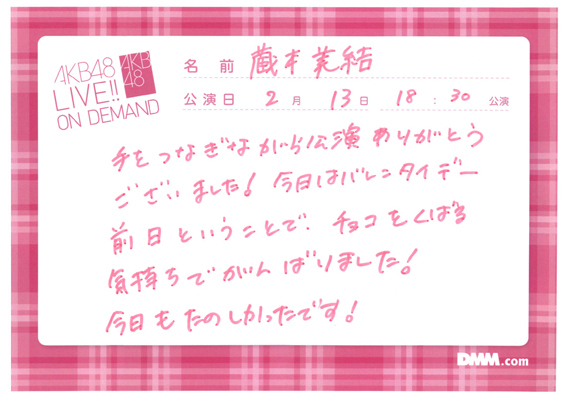 AKB48
LIVE!!
ON DEMAND
AKB
48
名前 蔵本美結
公演日 2月 13日 18:30 公演
手をつなぎながら公演ありがとう
ございました! 今日はバレンタイデー
前日ということで、チョコをくばる
気持ちでがんばりました!
今日もたのしかったです!
DMM.com